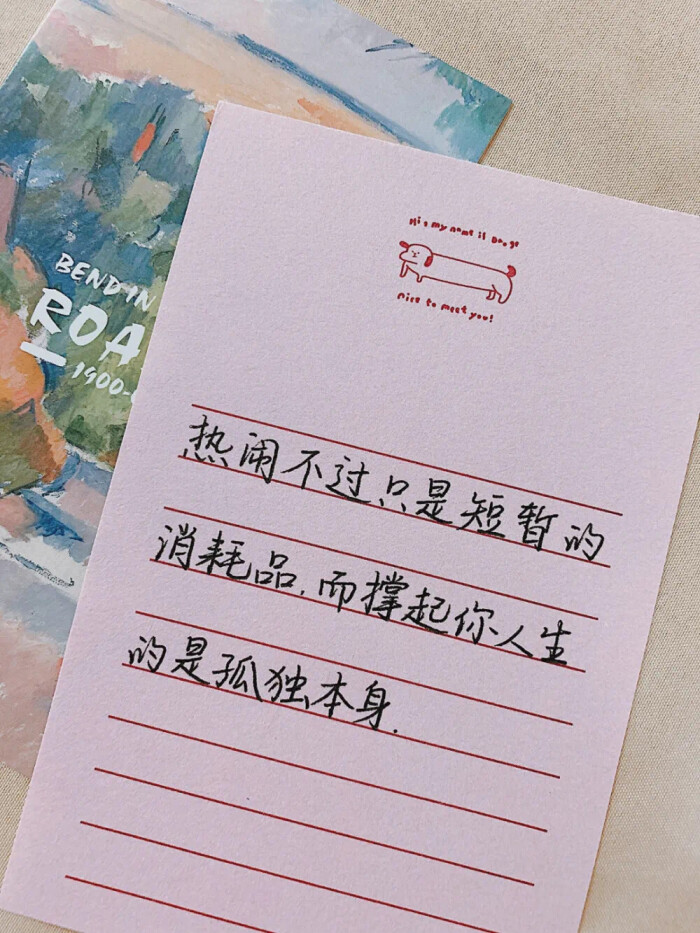 BEND IN
ROA
1900-
Hi, my name is Doogs
nice to meet you!
热闹不过只是短暂的
消耗品.而撑起你人生
的是孤独本身.